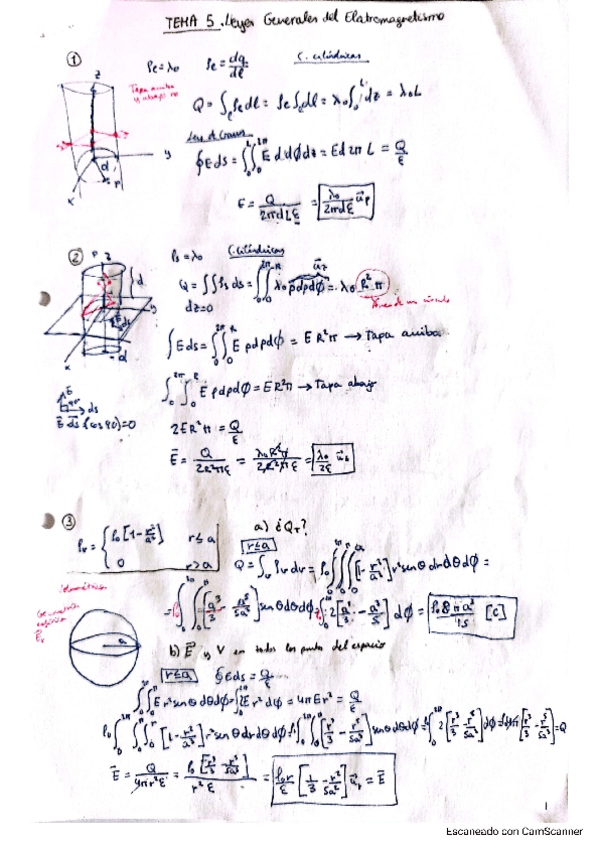 TEMA 5. Leyes Generales del Elatromagnetismo
① ρe = λ0 ρe = dq/dl C. cilíndricas
Tapa arriba y abajo no
Q = ∫ρe dl = ρe ∫dl = λ0 ∫dz = λ0 L
Ley de Gauss
∮E ds = ∫∫ E d dϕ dz = E d 2π L = Q/ε
E = Q/2πdLε = λ0/2πdε
② ρs = λ0 C. Cilíndricas
Q = ∫∫ ρs ds = ∫∫ λ0 ρdρdϕ = λ0 R² π
dz=0
Área de un círculo
∫E ds = ∫∫ E ρdρdϕ = E R²π → Tapa arriba
∫∫ E ρdρdϕ = E R²π → Tapa abajo
E ds (cos 90) = 0
2ER²π = Q/ε
E = Q/2R²πε = λ0R²π/2R²πε = λ0/2ε
③ a) ¿QT?
ρv = { ρ0 [1 - r²/a²] r≤a
0 r>a
r≤a
Q = ∫ρv dv = ρ0 ∫∫∫ [1 - r²/a²] r² senθ dr dθ dϕ =
Geometría esférica
= ρ0 ∫∫ [a³/3 - a⁵/5a²] senθ dθ dϕ = 2 [a³/3 - a³/5] dϕ = ρ0 8πa³/15 [C]
b) E y V en todos los puntos del espacio
r≤a ∮E ds = Q/ε
∫∫ E r² senθ dθ dϕ = ∫ 2E r² dϕ = 4πEr² = Q/ε
ρ0 ∫∫∫ [1 - r²/a²] r² senθ dr dθ dϕ = ρ0 ∫∫ [r³/3 - r⁵/5a²] senθ dθ dϕ = ρ0 ∫ 2 [r³/3 - r⁵/5a²] dϕ = ρ0 4π [r³/3 - r⁵/5a²] = Q
E = Q/4πr²ε = ρ0 [r³/3 - r⁵/5a²]/r²ε = ρ0 r/ε [1/3 - r²/5a²] ur = E
1
Escaneado con CamScanner